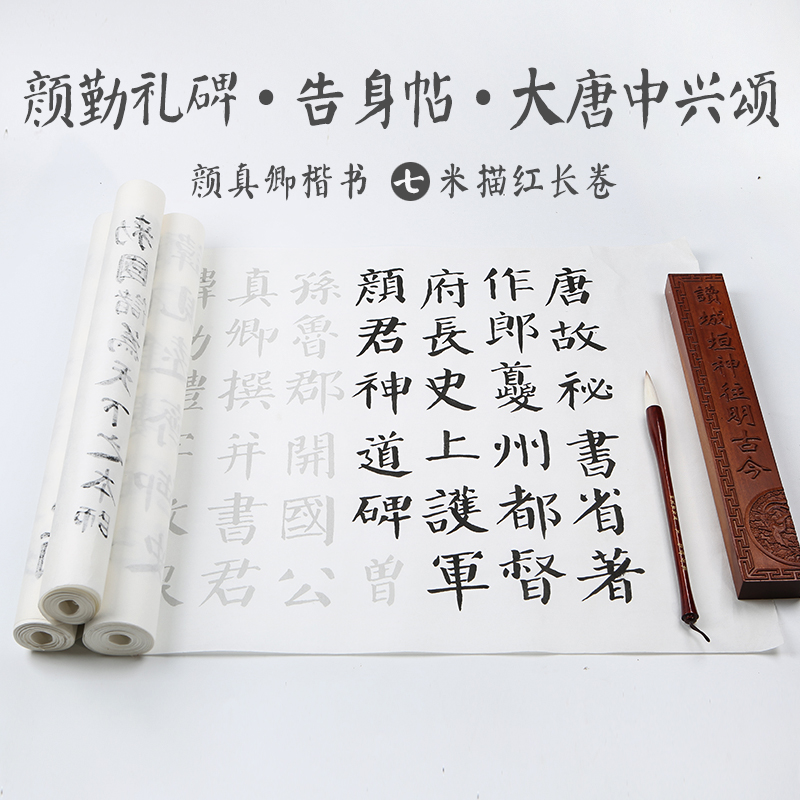 颜勤礼碑·告身帖·大唐中兴颂
颜真卿楷书 七米描红长卷
唐故祕書省著
作郎夔州都督
府長史上護軍
顏君神道碑曾
孫魯郡開國公
真卿撰并書君
諱勤禮字
勑國儲為天下之本師
城垣神明古今